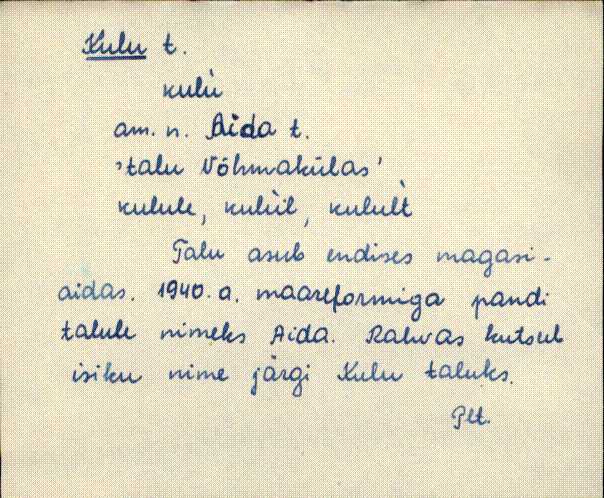 Kulu t.
kulù
am. n. Aida t.
'talu Võhmakülas'
kulule, kulùl, kulult̀
Talu asub endises magasi-
aidas. 1940. a. maareformiga pandi
talule nimeks Aida. Rahvas kutsub
isiku nime järgi Kulu taluks.
Plt.